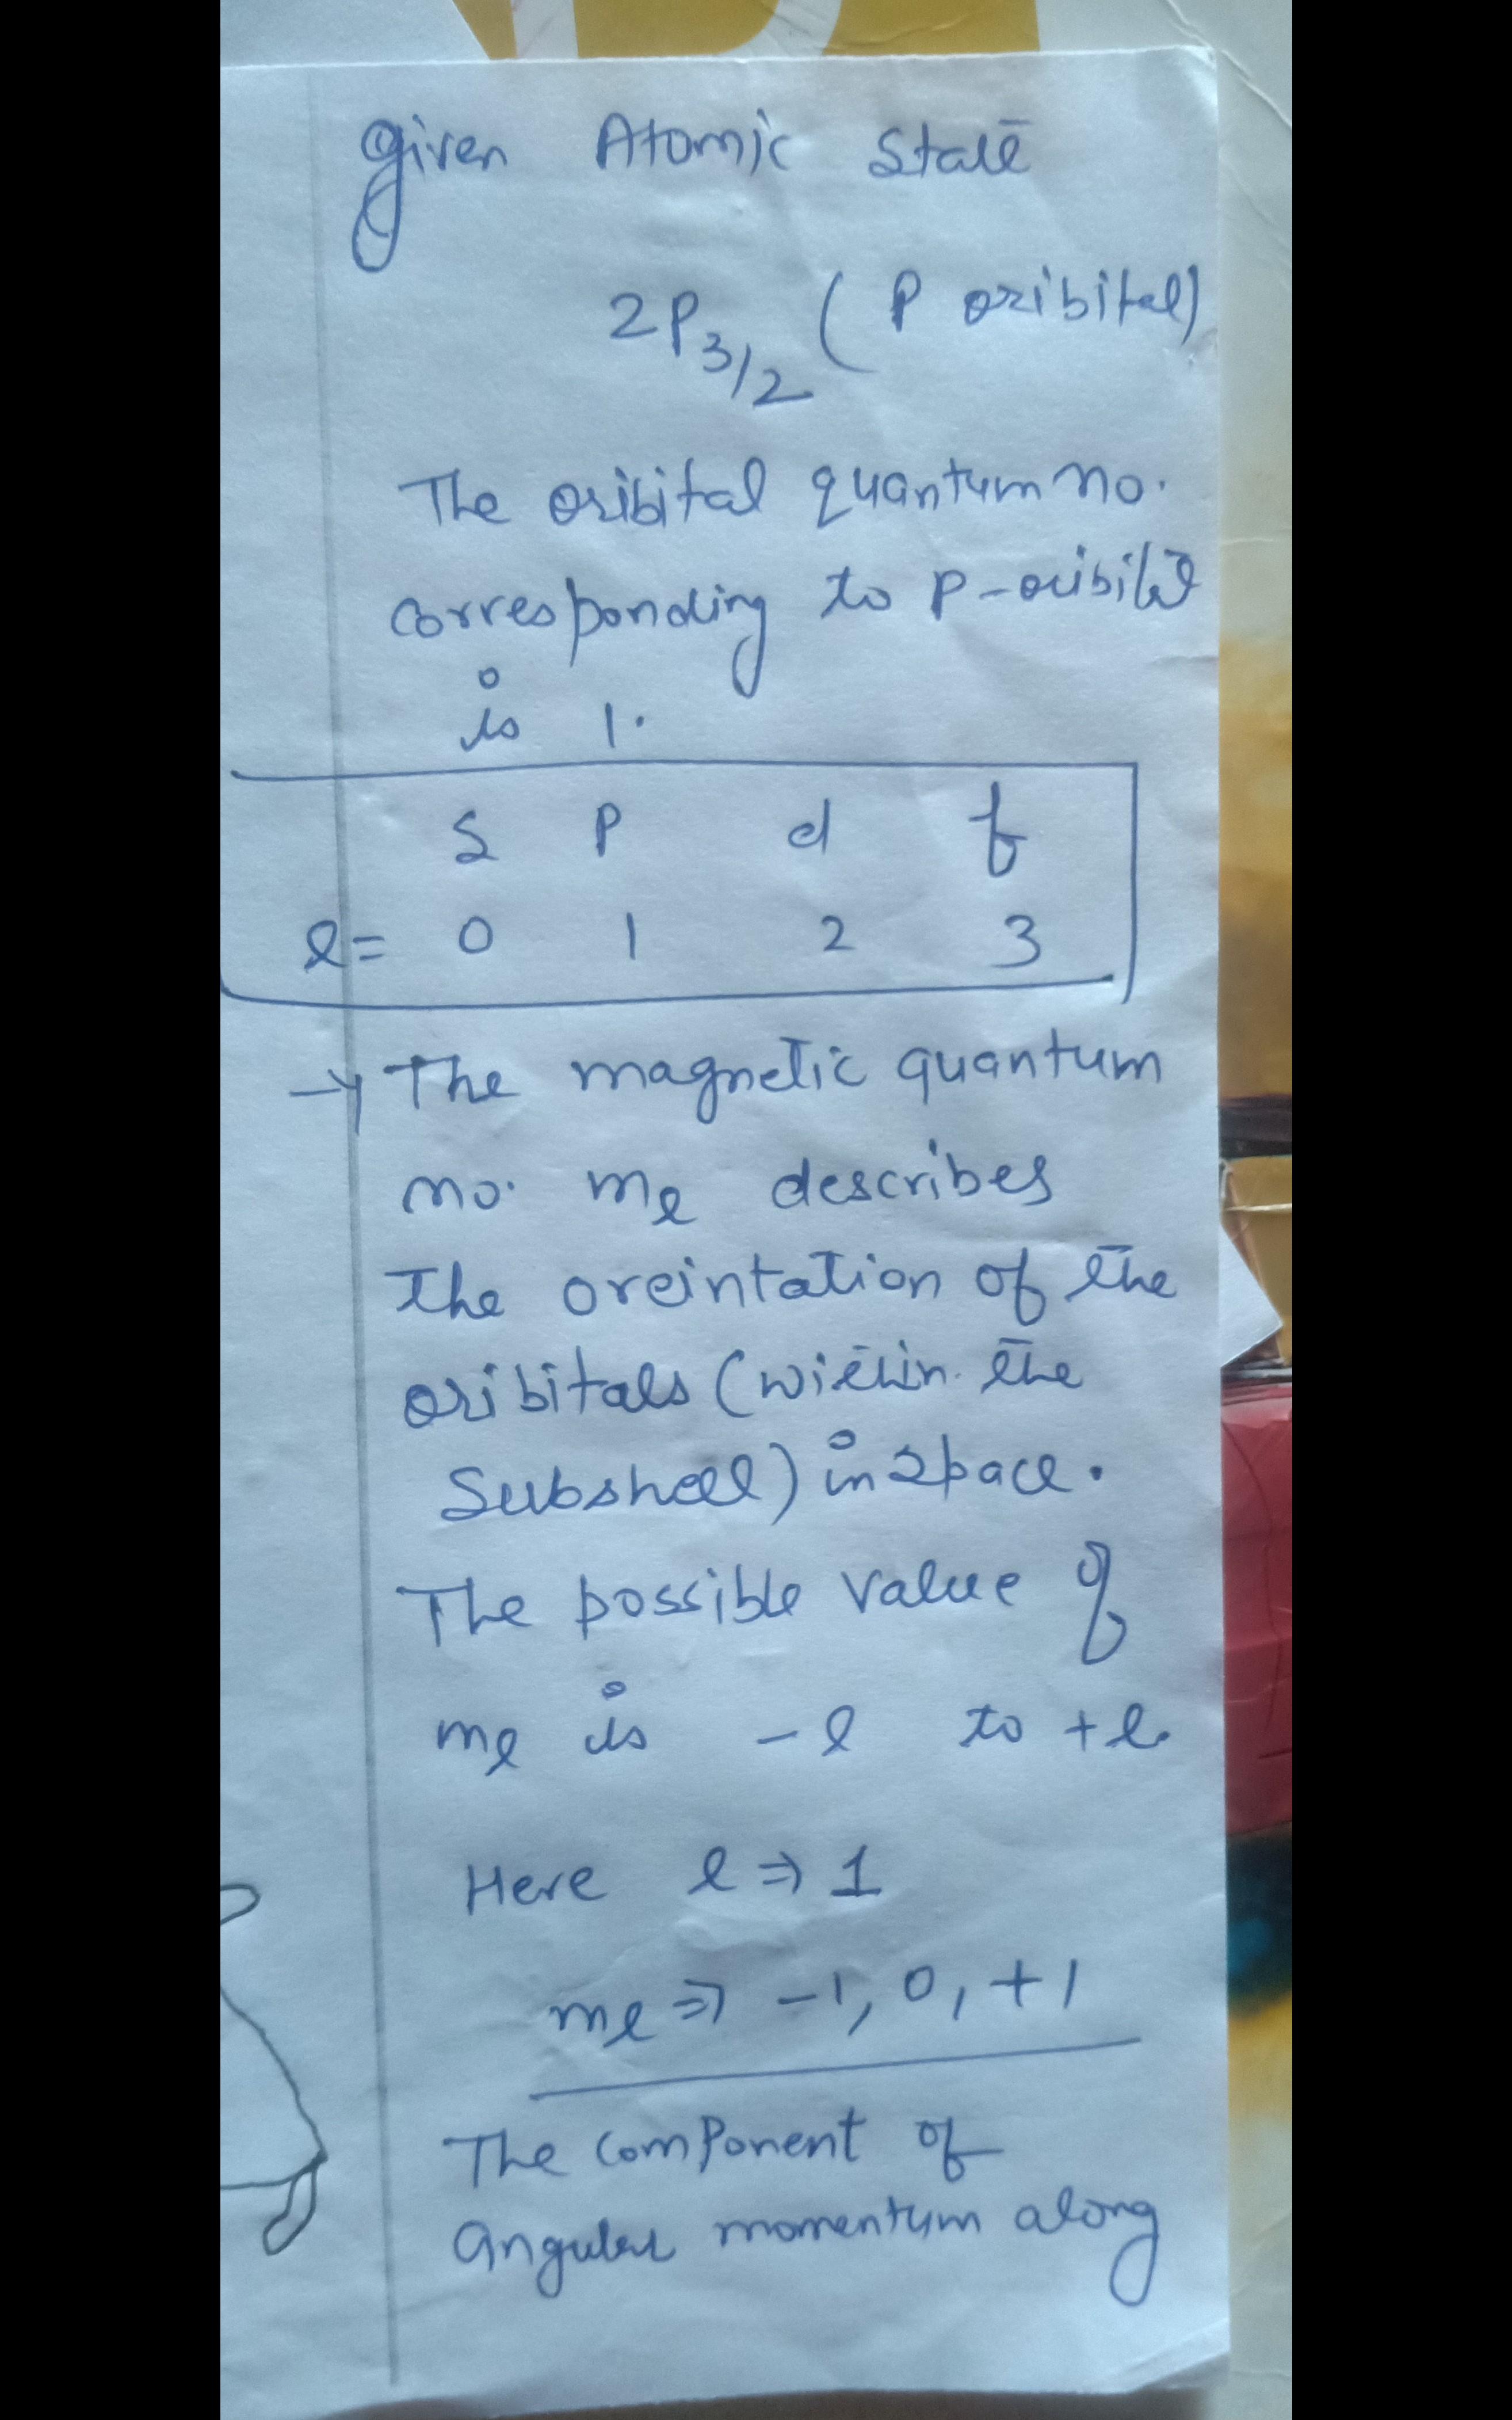 Given Atomic State
2P3/2 (P oribital)
The oribital quantum no.
corresponding to P-oribital
is 1.
S P d f
l= 0 1 2 3
→ The magnetic quantum
no. ml describes
The oreintation of the
oribitals (within the
Subshell) in space.
The possible value of
ml is -l to +l.
Here l ⇒ 1
ml ⇒ -1, 0, +1
The component of
angular momentum along